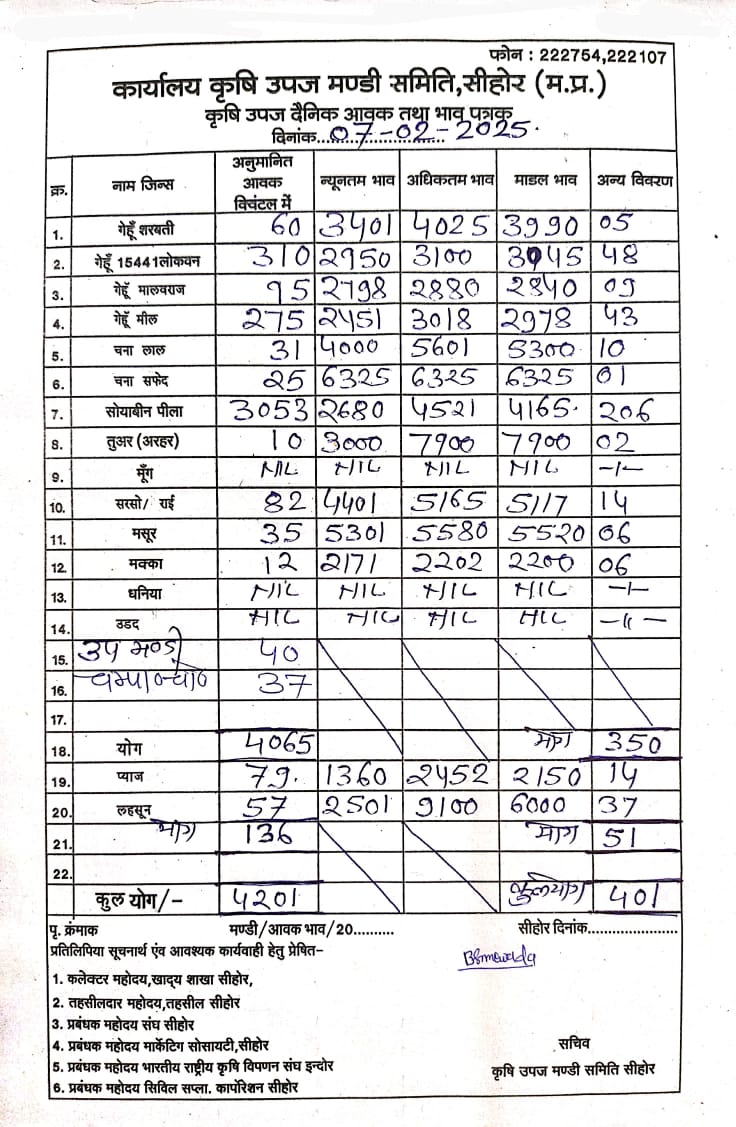 फोन : 222754,222107
कार्यालय कृषि उपज मण्डी समिति,सीहोर (म.प्र.)
कृषि उपज दैनिक आवक तथा भाव पत्रक
दिनांक...07-02-2025.
क्र. नाम जिन्स अनुमानित आवक क्विंटल में न्यूनतम भाव अधिकतम भाव माडल भाव अन्य विवरण
1. गेहूँ शरबती 60 3401 4025 3990 05
2. गेहूँ 15441लोकवन 310 2950 3100 3045 48
3. गेहूँ मालवराज 95 2798 2880 2840 09
4. गेहूँ मील 275 2451 3018 2978 43
5. चना लाल 31 4000 5601 5300 10
6. चना सफेद 25 6325 6325 6325 01
7. सोयाबीन पीला 3053 2680 4521 4165. 206
8. तुअर (अरहर) 10 3000 7900 7900 02
9. मूँग NIL NIL NIL NIL -1-
10. सरसो/ राई 82 4401 5165 5117 14
11. मसूर 35 5301 5580 5520 06
12. मक्का 12 2171 2202 2200 06
13. धनिया NIL NIL NIL NIL -1-
14. उडद NIL NIL NIL NIL -11-
15. उप मण्डी 40
16. 37
17.
18. योग 4065 योग 350
19. प्याज 79. 1360 2452 2150 14
20. लहसून 57 2501 9100 6000 37
21. योग 136 योग 51
22.
कुल योग/- 4201 कुलयोग 401
पृ. क्रंमाक मण्डी/आवक भाव/20.......... सीहोर दिनांक.......................
प्रतिलिपिया सूचनार्थ एंव आवश्यक कार्यवाही हेतु प्रेषित-
1. कलेक्टर महोदय,खाद्य शाखा सीहोर,
2. तहसीलदार महोदय,तहसील सीहोर
3. प्रबंधक महोदय संघ सीहोर
4. प्रबंधक महोदय मार्केटिग सोसायटी,सीहोर
5. प्रबंधक महोदय भारतीय राष्ट्रीय कृषि विपणन संघ इन्दोर
6. प्रबंधक महोदय सिविल सप्ला. कार्पोरेशन सीहोर
सचिव
कृषि उपज मण्डी समिति सीहोर